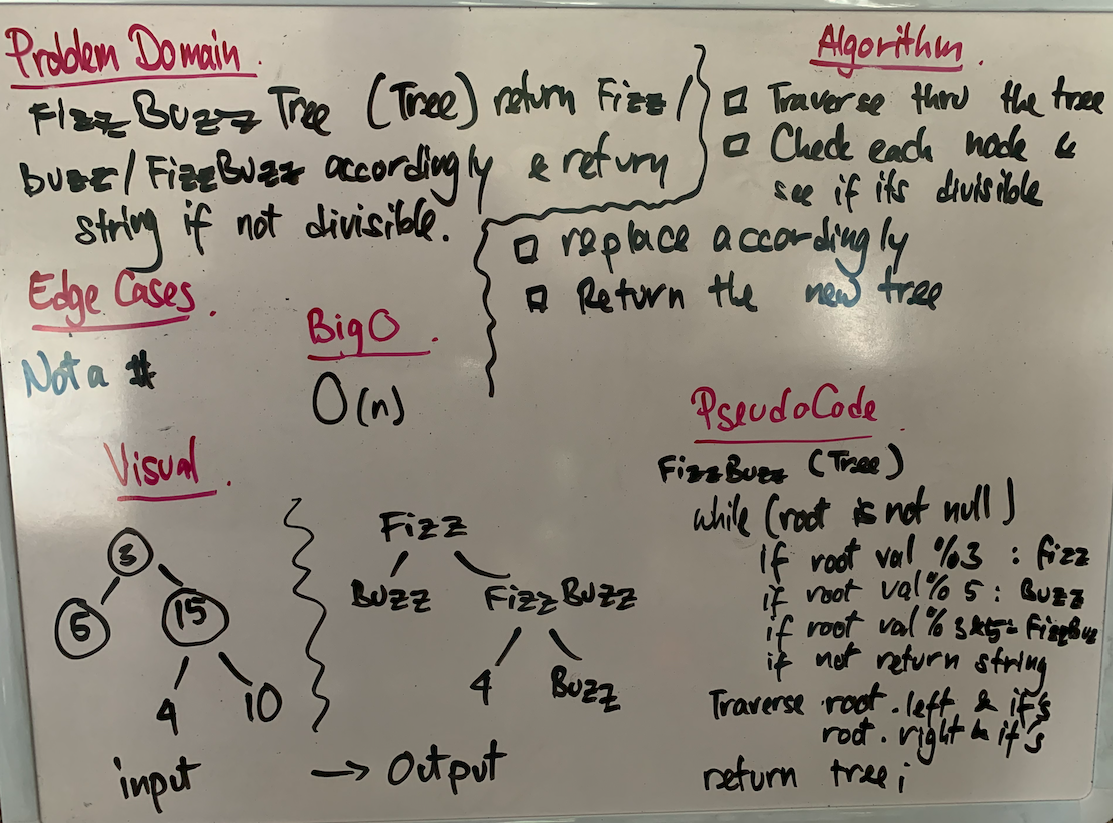 Problem Domain.
FizzBuzz Tree (Tree) return Fizz/
buzz/FizzBuzz accordingly & return
string if not divisible.
Algorithm.
□ Traverse thru the tree
□ Check each node &
see if its divisible
□ replace accordingly
□ Return the new tree
Edge Cases.
Not a #
Big O.
O(n)
Visual.
3
5 15
4 10
input
Fizz
Buzz FizzBuzz
4 Buzz
→ Output
PseudoCode
FizzBuzz (Tree)
while (root is not null)
if root val %3 : fizz
if root val % 5 : Buzz
if root val % 3&5= FizzBuz
if not return string
Traverse root.left & if's
root.right & if's
return tree;